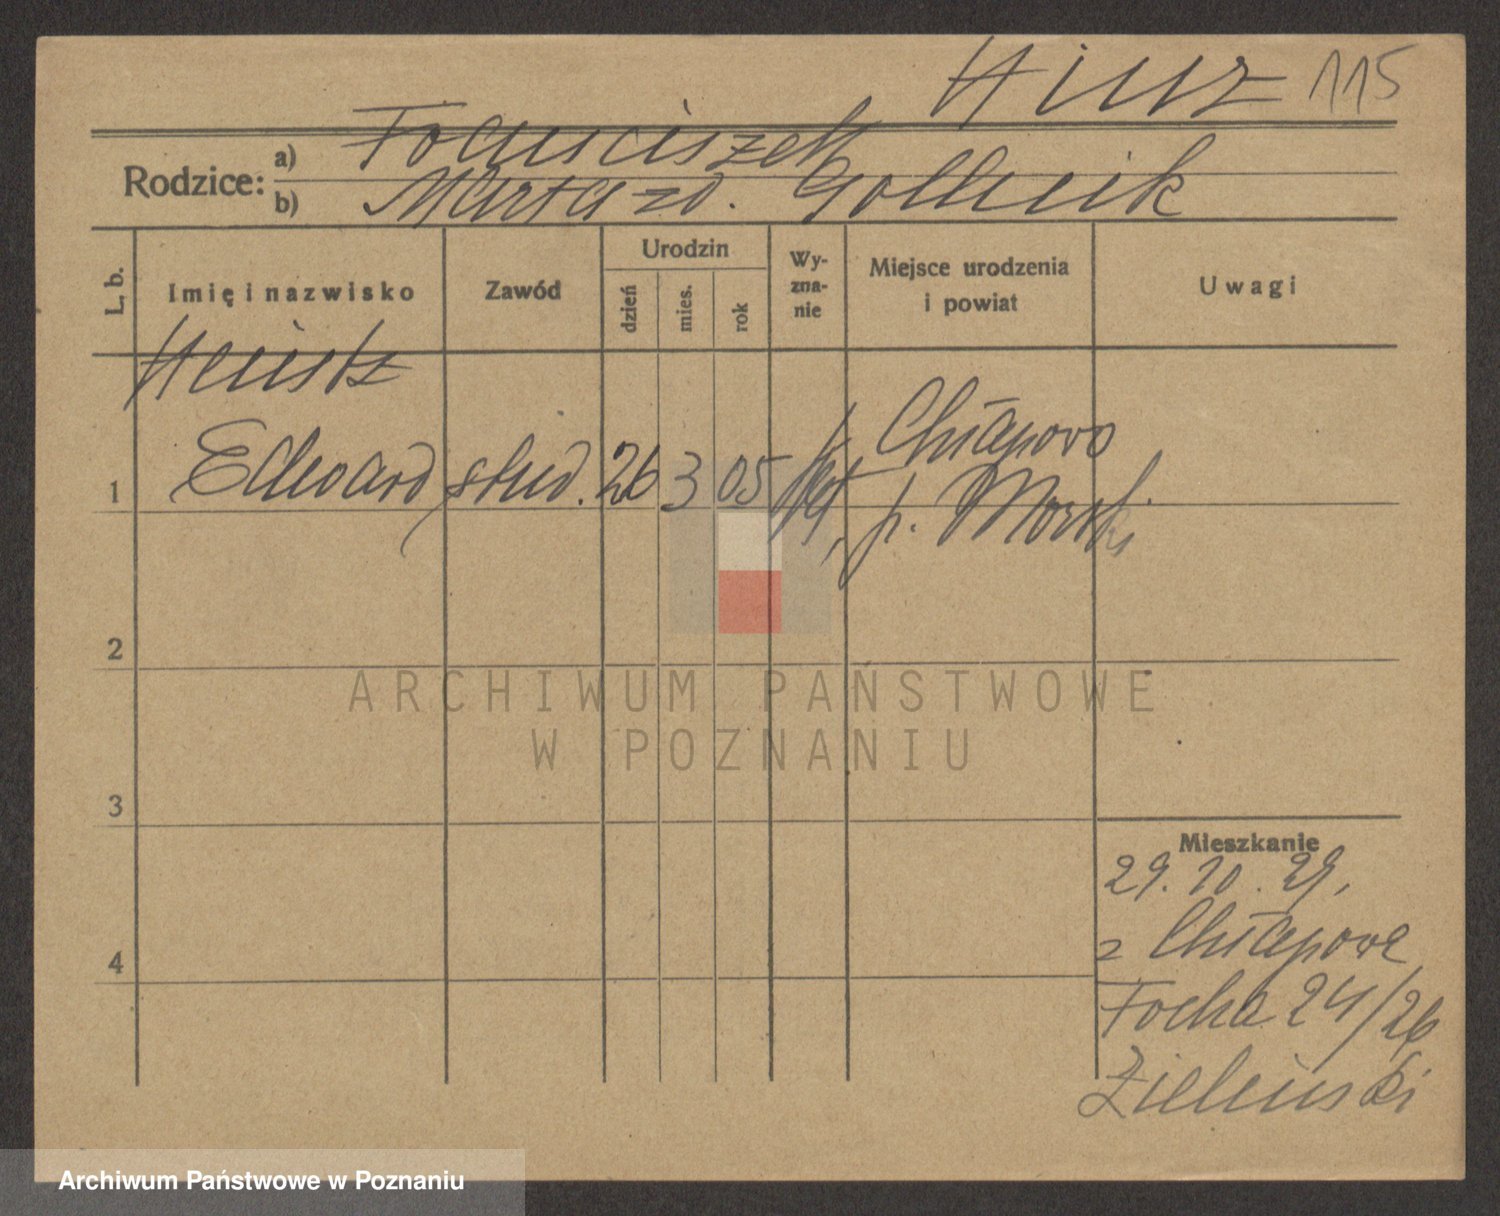 Hinz 115
Rodzice:
a) Franciszek
b) Marta zd. Gollnik
L. b.
Imię i nazwisko
Zawód
Urodzin
dzień
mies.
rok
Wy-
zna-
nie
Miejsce urodzenia
i powiat
Uwagi
1
Edward stud. 26 3 05
Chłapowo
p. Morski
2
3
4
Mieszkanie
29. 10. 29.
z Chłapowa
Focha 24/26
Zieliński
ARCHIWUM PAŃSTWOWE
W POZNANIU
Archiwum Państwowe w Poznaniu